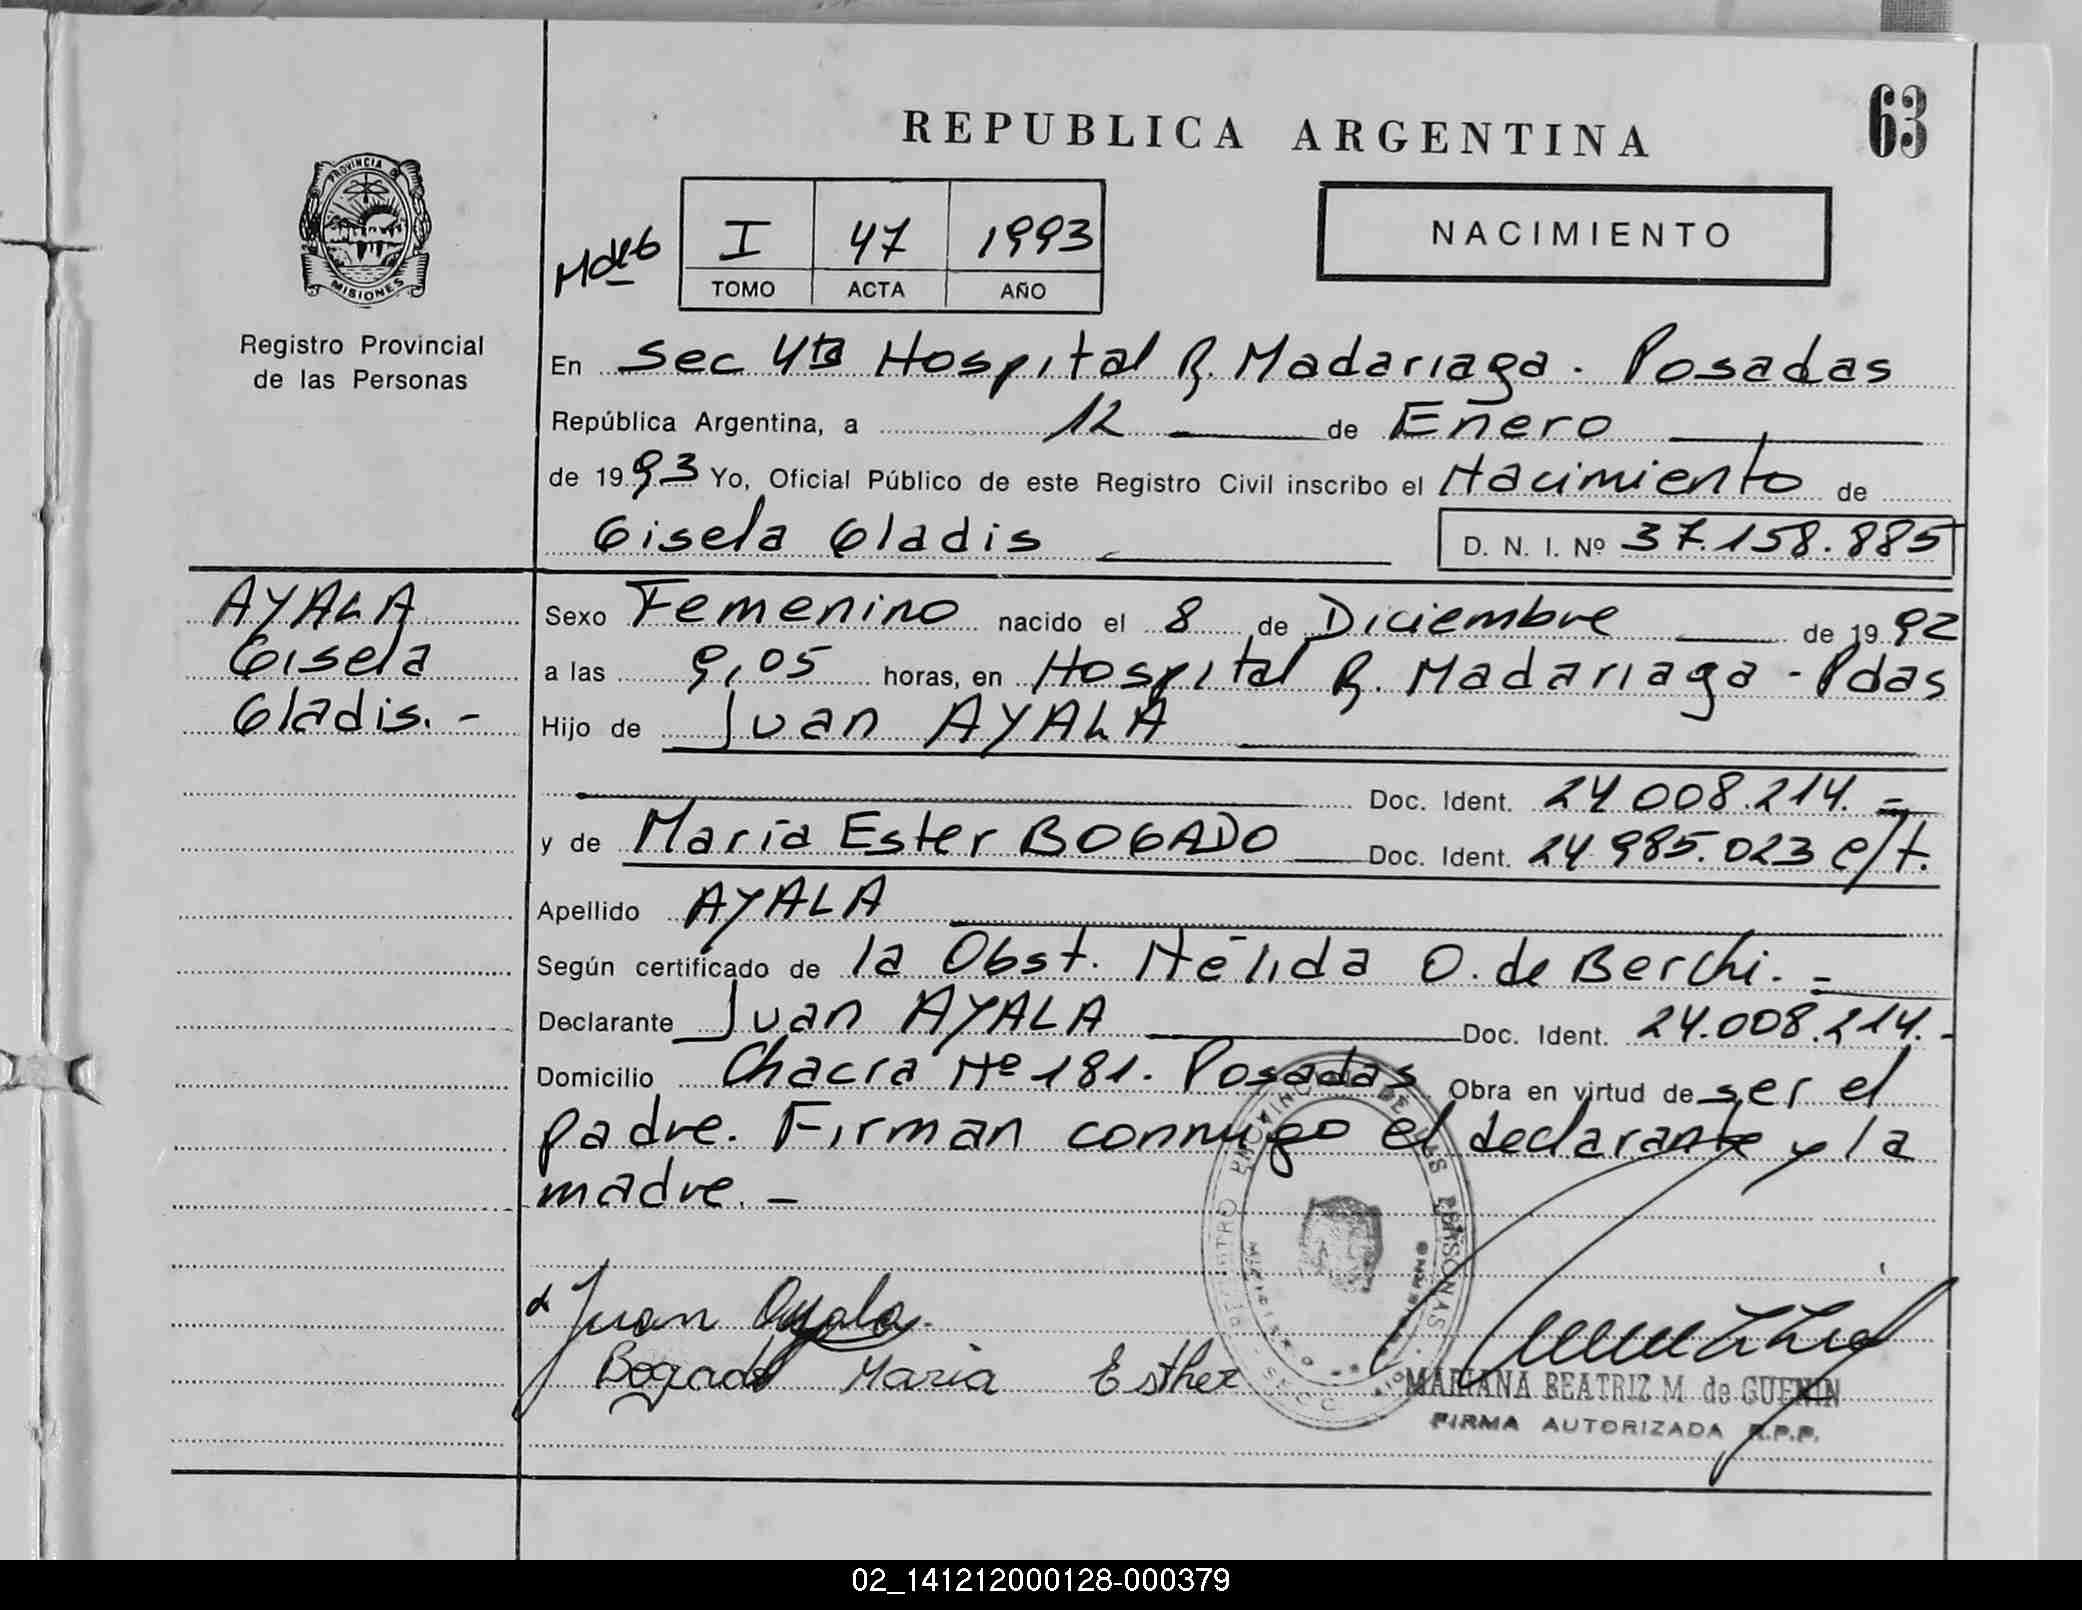 63
REPUBLICA ARGENTINA
PROVINCIA DE
MISIONES
Registro Provincial
de las Personas
I 47 1993
TOMO ACTA AÑO
NACIMIENTO
En Sec 4ta Hospital R. Madariaga. Posadas
República Argentina, a 12 de Enero
de 1993 Yo, Oficial Público de este Registro Civil inscribo el Nacimiento de
Gisela Gladis D. N. I. Nº 37.158.885
AYALA
Gisela
Gladis. -
Sexo Femenino nacido el 8 de Diciembre de 1992
a las 9,05 horas, en Hospital R. Madariaga - Pdas
Hijo de Juan AYALA
Doc. Ident. 24 008.214. =
y de María Ester BOGADO Doc. Ident. 24 985.023 e/t.
Apellido AYALA
Según certificado de la Obst. Nélida O. de Berchi. -
Declarante Juan AYALA Doc. Ident. 24.008.214.-
Domicilio Chacra Nº 181. Posadas Obra en virtud de ser el
padre. Firman conmigo el declarante y la
madre. -
REGISTRO PROVINCIAL DE LAS PERSONAS
Juan Ayala
Bogado Maria Esther
MARIANA BEATRIZ M. de GUENIN
FIRMA AUTORIZADA R.P.P.
02_141212000128-000379